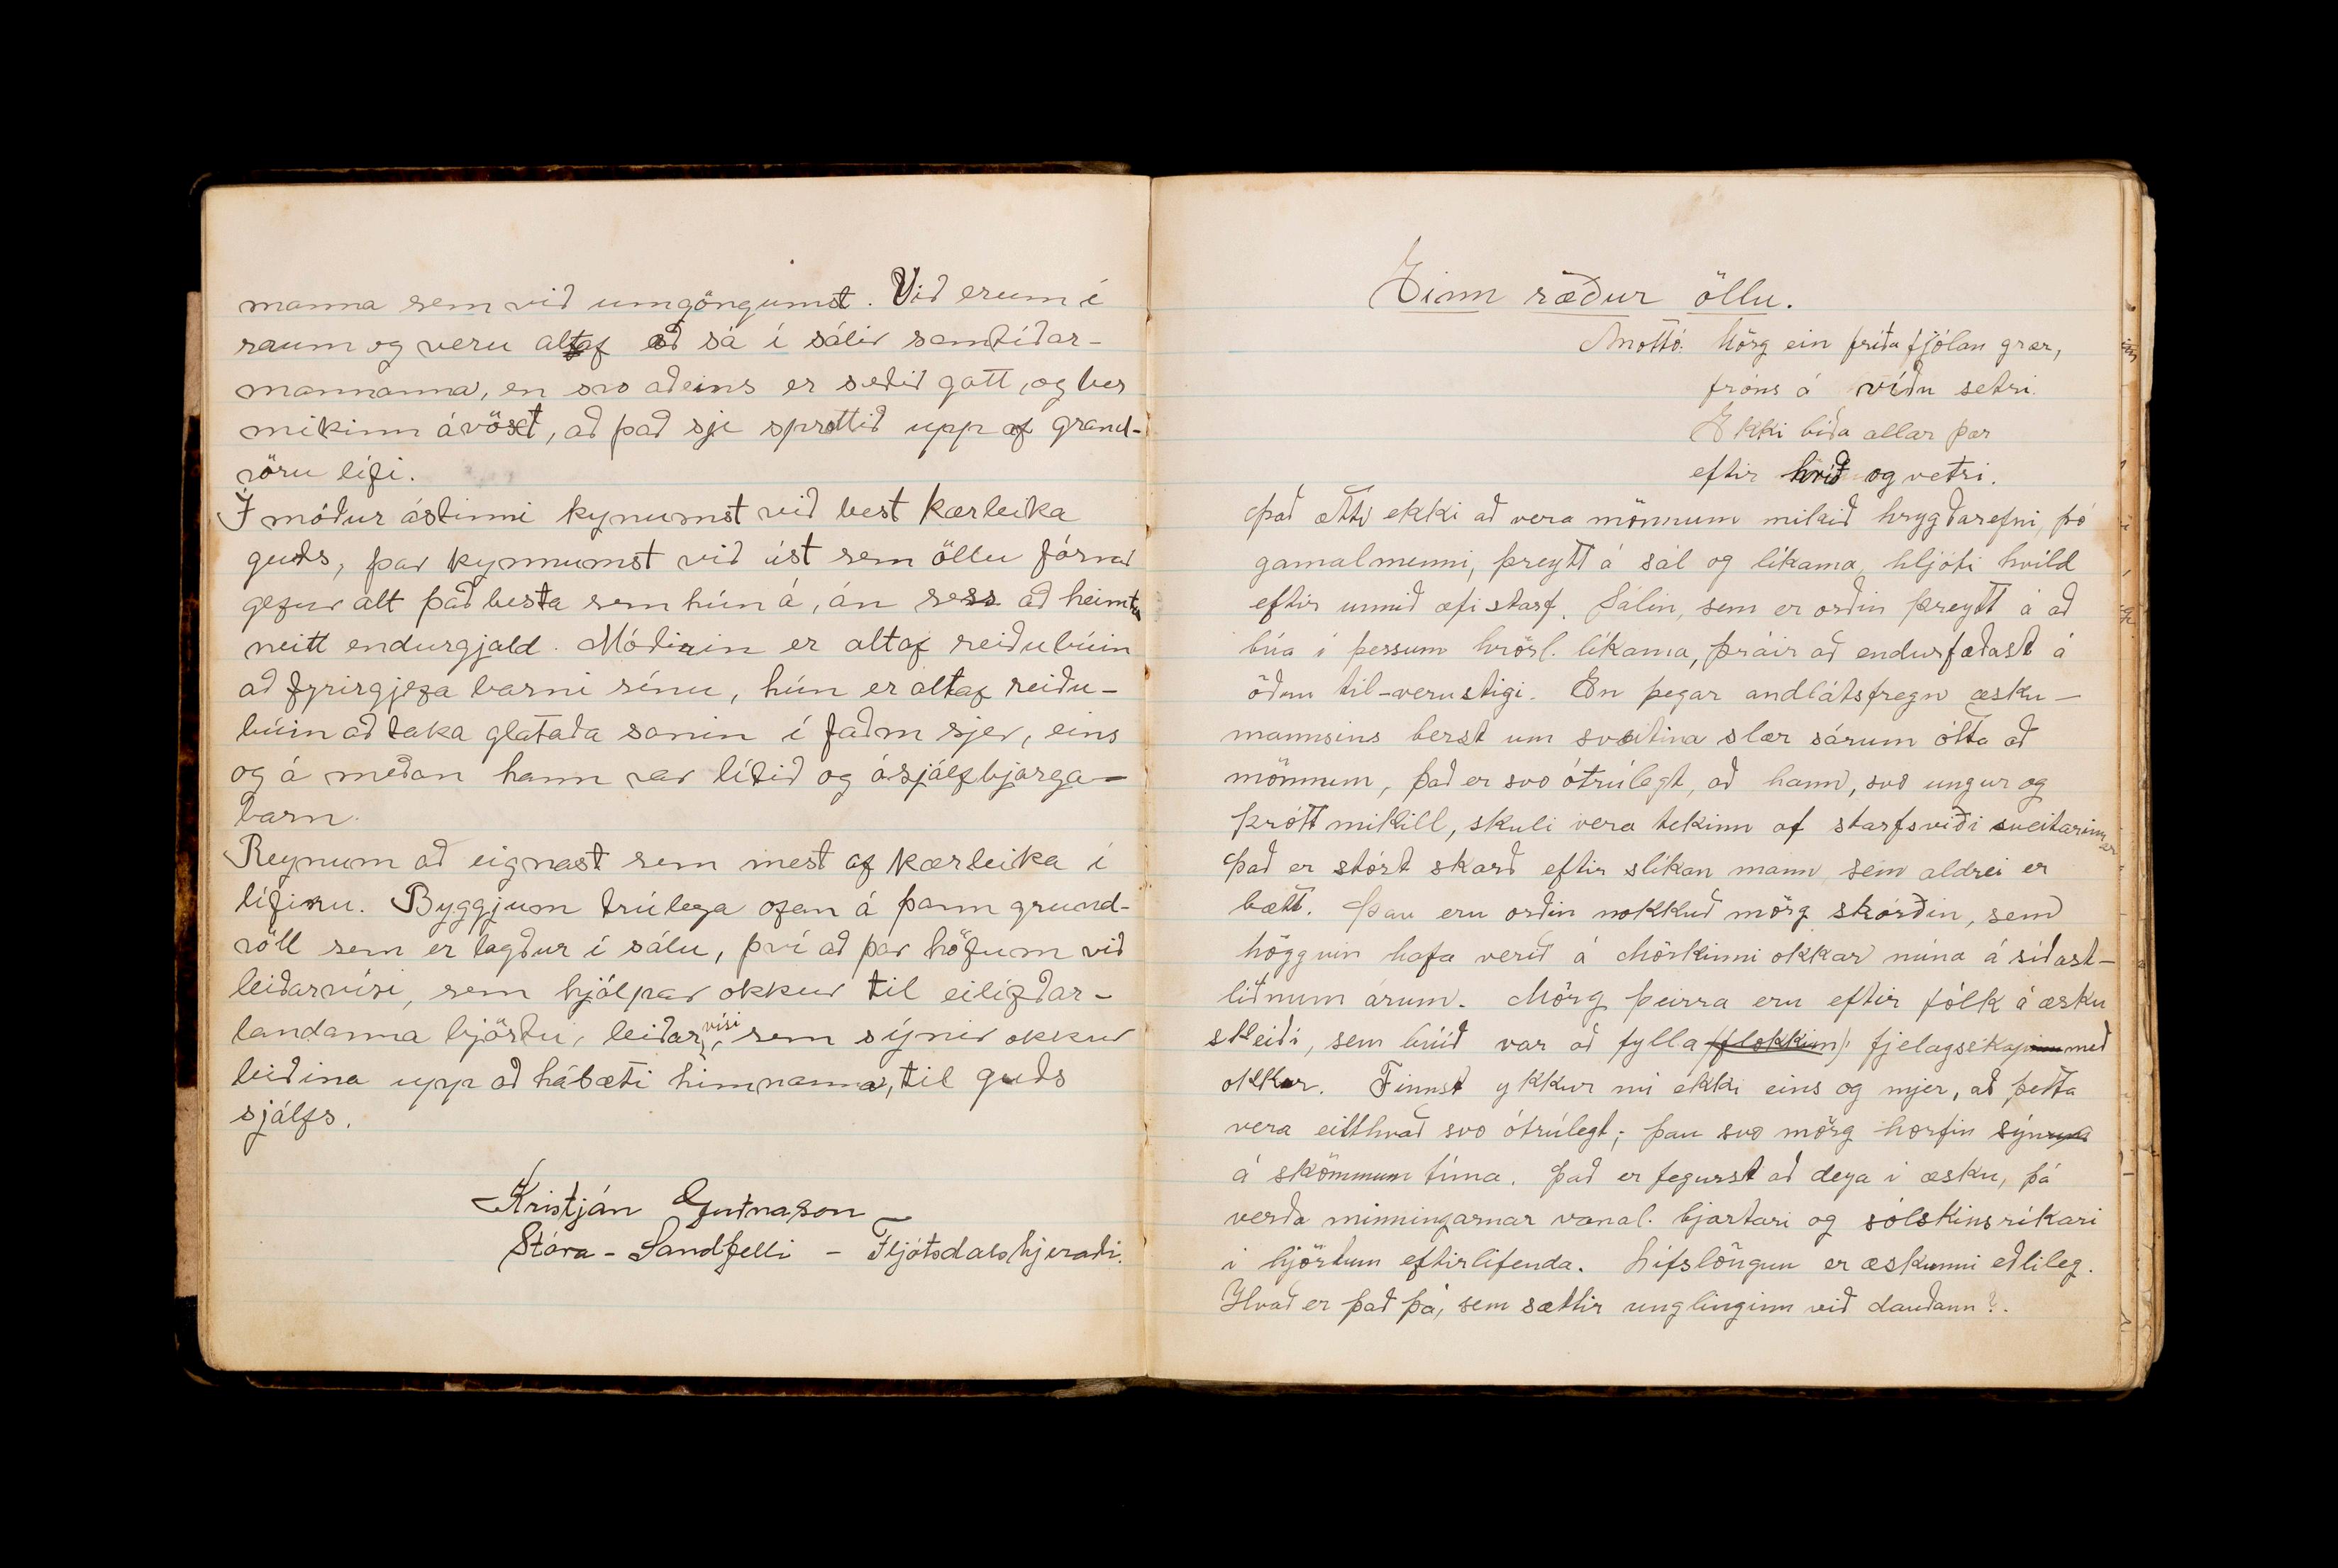 manna sem við umgöngumst. Við erum í
raum og veru altaf að sá í sálir samtíðar-
mannanna, en svo aðeins er sæðið gott, og ber
mikinn ávöxt, að það sje sprottið upp af grand-
vöru lífi.
Í móður ástinni kynumst við best kærleika
guðs, þar kynnumst við ást sem öllu fórnar
gefur alt það besta sem hún á, án þess að heimta
neitt endurgjald. Móðirin er altaf reiðubúin
að fyrirgjefa barni sínu, hún er altaf reiðu-
búin að taka glataða sonin í faðm sjer, eins
og á meðan hann var lítið og ósjálfbjarga-
barn.
Reynum að eignast sem mest af kærleika í
lífinu. Byggjum trúlega ofan á þann grund-
völl sem er lagður í sálu, því að þar höfum við
leiðarvísi, sem hjálpar okkur til eilífðar-
landanna björtu, leiðarvísi, sem sýnir okkur
leiðina upp að hábæti himnanna, til guðs
sjálfs.
Kristján Guðnason
Stóra-Sandfelli - Fljótsdalshjeraði.
Einn ræður öllu.
Mottó: Mörg ein fríða fjólan grær,
fróns á víðu setri.
Ekki bíða allar þær
eftir hríð og vetri.
Það ætti ekki að vera mönnum mikið hrygðarefni, þó
gamalmenni, þreytt á sál og líkama, hljóti hvíld
eftir unnið æfistarf. Sálin, sem er orðin þreytt á að
búa í þessum hrörl. líkama, þráir að endurfæðast á
öðru til-verustigi. En þegar andlátsfregn æsku-
mannsins berst um sveitina slær sárum ótta að
mönnum, það er svo ótrúlegt, að hann, svo ungur og
þróttmikill, skuli vera tekinn af starfsviði sveitarinnar
Það er stórt skarð eftir slíkan mann, sem aldrei er
bætt. Þau eru orðin nokkuð mörg skörðin, sem
höggvin hafa verið á Mörkinni okkar núna á síðast-
liðnum árum. Mörg þeirra eru eftir fólk á æsku
skeiði, sem búið var að fylla (flokkinn) fjelagsskapinn með
okkar. Finnst ykkur nú ekki eins og mjer, að þetta
vera eitthvað svo ótrúlegt; þau svo mörg horfin
á skömmum tíma. Það er fegurst að deya í æsku, þá
verða minningarnar vanal. bjartari og sólskinsríkari
í hjörtum eftirlifenda. Lífslöngun er æskunni eðlileg.
Hvað er það þá, sem sættir unglinginn við dauðann?.